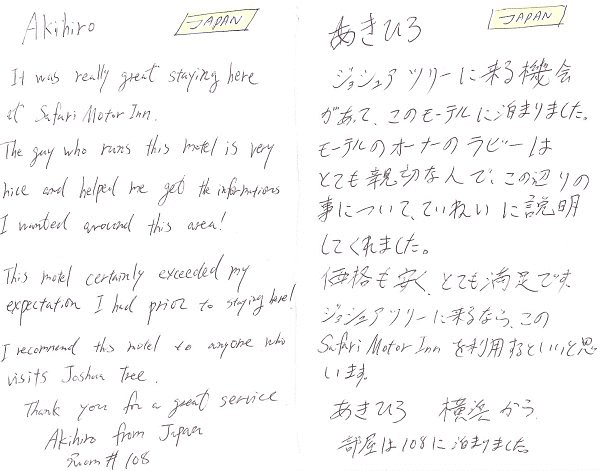 Akihiro
JAPAN
It was really great staying here
at Safari Motor Inn.
The guy who runs this motel is very
nice and helped me get the informations
I wanted around this area!
This motel certainly exceeded my
expectation I had prior to staying here!
I recommend this motel to anyone who
visits Joshua Tree.
Thank you for a great service.
Akihiro from Japan
Room # 108
あきひろ
JAPAN
ジョシュア ツリーに来る機会
があって、このモーテルに泊まりました。
モーテルのオーナーのラビーは
とても親切な人で、この辺りの
事について、ていねいに説明
してくれました。
価格も安く、とても満足です。
ジョシュアツリーに来るなら、この
Safari Motor Inn を利用するといいと思
います。
あきひろ 横浜から
部屋は108に泊まりました。